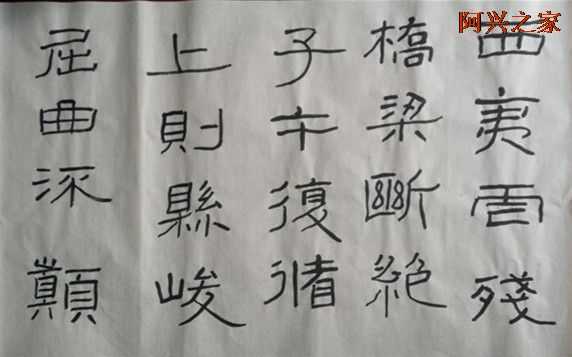 阿兴之家
西夷虐殘
橋梁斷絶
子午復循
上則縣峻
屈曲流顛